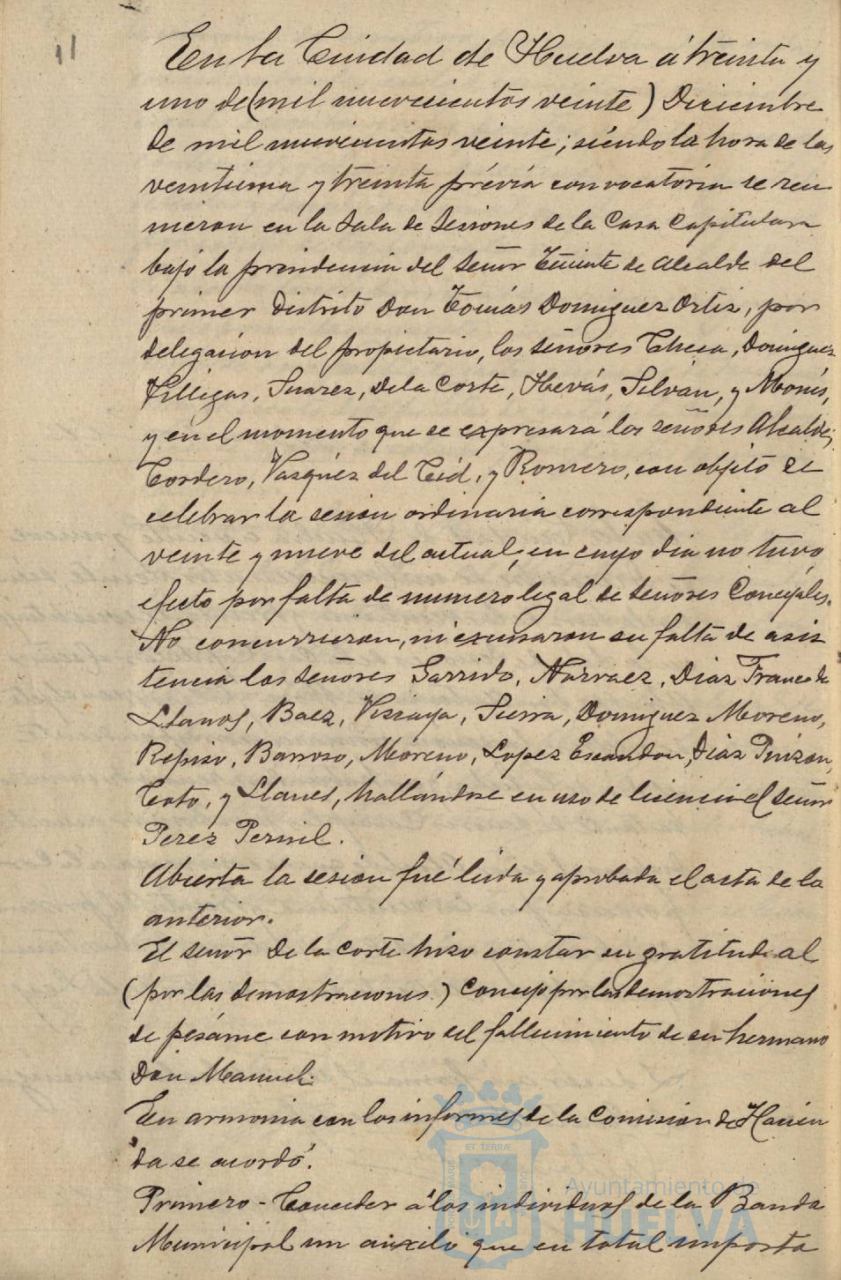 11
En la Ciudad de Huelva á treinta y
uno de (mil nuevecientos veinte) Diciembre
de mil nuevecientos veinte; siéndo la hora de las
veintiuna y treinta prévia convocatoria se reu
nieron en la Sala de Sesiones de la Casa Capitular
bajo la presidencia del Señor Teniente de Alcalde del
primer distrito Don Tomás Dominguez Ortiz, por
delegacion del propietario, los señores Checa, Dominguez
Villegas, Suarez, De la Corte, Hevás, Silván, y Monis,
y en el momento que se expresará los señores Alcalde,
Cordero, Vasquéz del Cid, y Romero, con objeto de
celebrar la sesion ordinaria correspondiente al
veinte y nueve del actual, en cuyo dia no tuvo
efecto por falta de numero legal de Señores Concejáles.
No concurrieron, ni excusaron su falta de asis
tencia los señores Garrido, Narvaez, Diaz Franco de
Llanos, Baez, Viscaya, Sierra, Dominguez Moreno,
Repiso, Barroso, Moreno, Lopez Escandon, Diaz Pinzon,
Coto, y Llanes, hallándose en uso de licencia el señor
Perez Pernil.
Abierta la sesion fué leida y aprobada el acta de la
anterior.
El señor De la Corte hizo constar su gratitud al
(por las demostraciones) Concejo por las demostraciones
de pésame con motivo del fallecimiento de su hermano
Don Manuel.
En armonia con los informes de la Comision de Hacien
da se acordó.
Primero - Conceder á los individuos de la Banda
Municipal un auxilio que en total importa
Ayuntamiento de
HUELVA